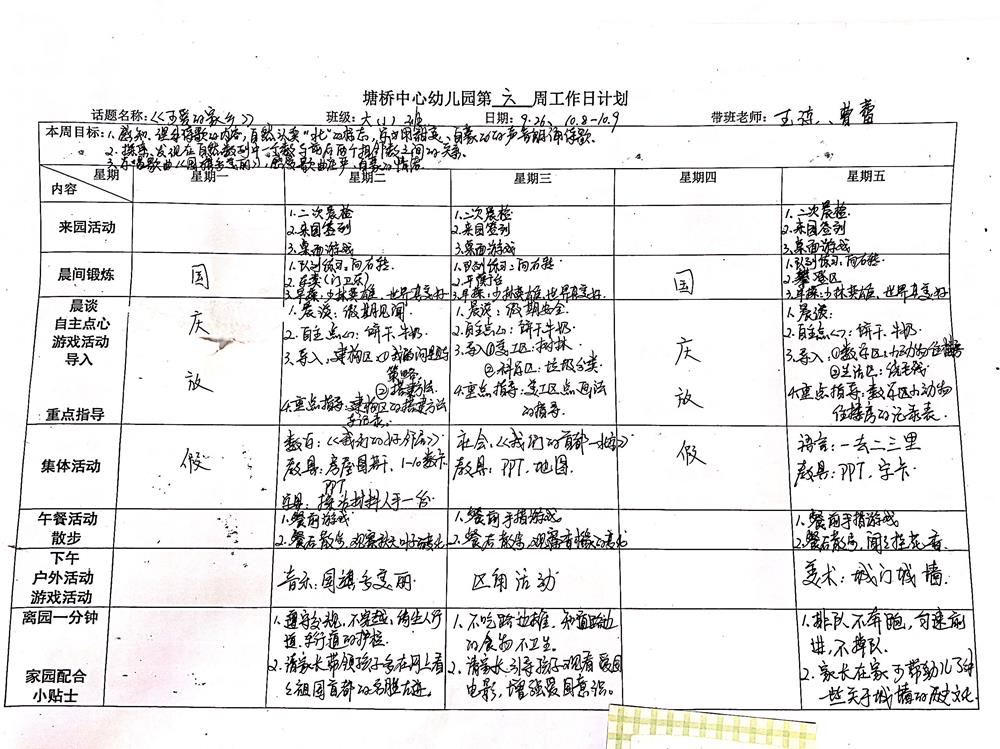 塘桥中心幼儿园第六周工作日计划
话题名称:《可爱的家乡》 班级:大(1)班 日期:9.26、10.8-10.9 带班老师:
本周目标:1.感知、理解诗歌的内容,
2.探索、发现在自然数列中一个数与前后两个相邻数之间的关系。
3.学唱歌曲《国旗多美丽》,
星期 星期一 星期二 星期三 星期四 星期五
内容
来园活动
1.二次晨检
2.来园签到
3.桌面游戏
1.二次晨检
2.来园签到
3.桌面游戏
1.二次晨检
2.来园签到
3.桌面游戏
晨间锻炼
国
1.队列练习:向右转.
3.早操:少林英雄、世界真美好
1.队列练习:向右转
2.平衡台
3.早操:少林英雄、世界真美好
国
1.队列练习:向右转.
2.攀登区
3.早操:少林英雄、世界真美好
晨谈
自主点心
游戏活动
导入
重点指导
庆
放
1.晨谈:假期见闻
2.自主点心:饼干、牛奶
3.导入:建构区:①我的问题与
策略
②搭建方法
4.重点指导:建构区的搭建方法
与记录.
1.晨谈:假期安全
2.自主点心:饼干牛奶
3.导入①美工区:树林
②科学区:垃圾分类
4.重点指导:美工区点画法
的指导.
庆
放
1.晨谈:
2.自主点心:饼干、牛奶
3.导入:①数学区:小动物住楼房
②生活区:
4.重点指导:数学区小动物
住楼房的记录表.
集体活动
假
数学:《我们的好邻居》
教具:房屋图片、1-10数卡
PPT
学具:操作材料人手一份
社会:《我们的首都—北京》
教具:PPT、地图
假
语言:一去二三里
教具:PPT、字卡
午餐活动
散步
1.餐前游戏
2.餐后散步,观察秋天叶子的变化
1.餐前手指游戏
2.餐后散步,观察
1.餐前手指游戏
2.餐后散步,闻闻桂花香
下午
户外活动
游戏活动
音乐:国旗多美丽
区角活动
美术:城门城墙
离园一分钟
1.遵守交规,不穿越、绕坐人行
道、车行道的护栏.
1.不吃路边摊,知道路边
的食物不卫生。
1.排队不奔跑,匀速前
进,不掉队.
家园配合
小贴士
2.请家长带领孩子多在网上看
看祖国首都的名胜古迹。
2.请家长引导孩子观看爱国
电影,增强爱国意识。
2.家长在家可带幼儿了解
一些关于城墙的历史文化